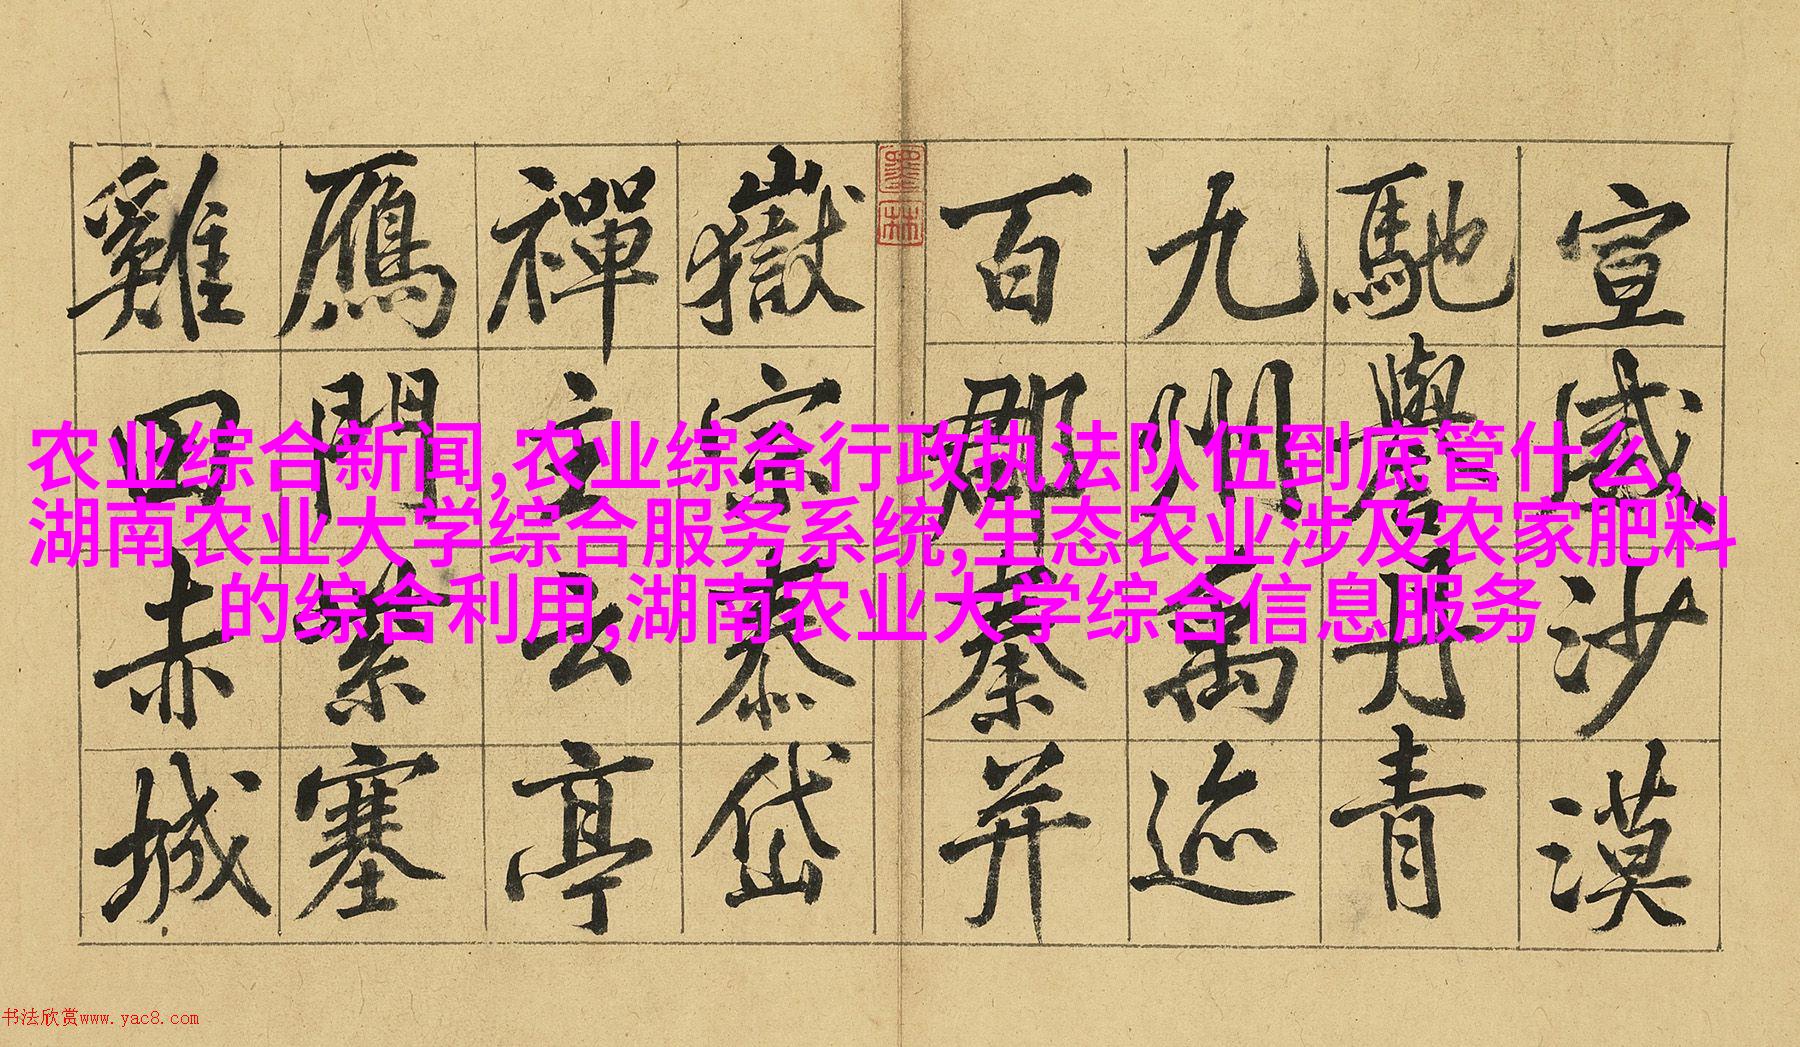 宣威沙漠
馳譽丹青
九州禹迹
百郡秦并
墨林
嶽宗泰岱
禪主云亭
鴈門紫塞
雞田赤城
农业综合新闻,农业综合行政执法队伍到底管什么,
湖南农业大学综合服务系统,生态农业涉及农家肥料
的综合利用,湖南农业大学综合信息服务
书法欣赏www.yac8.com